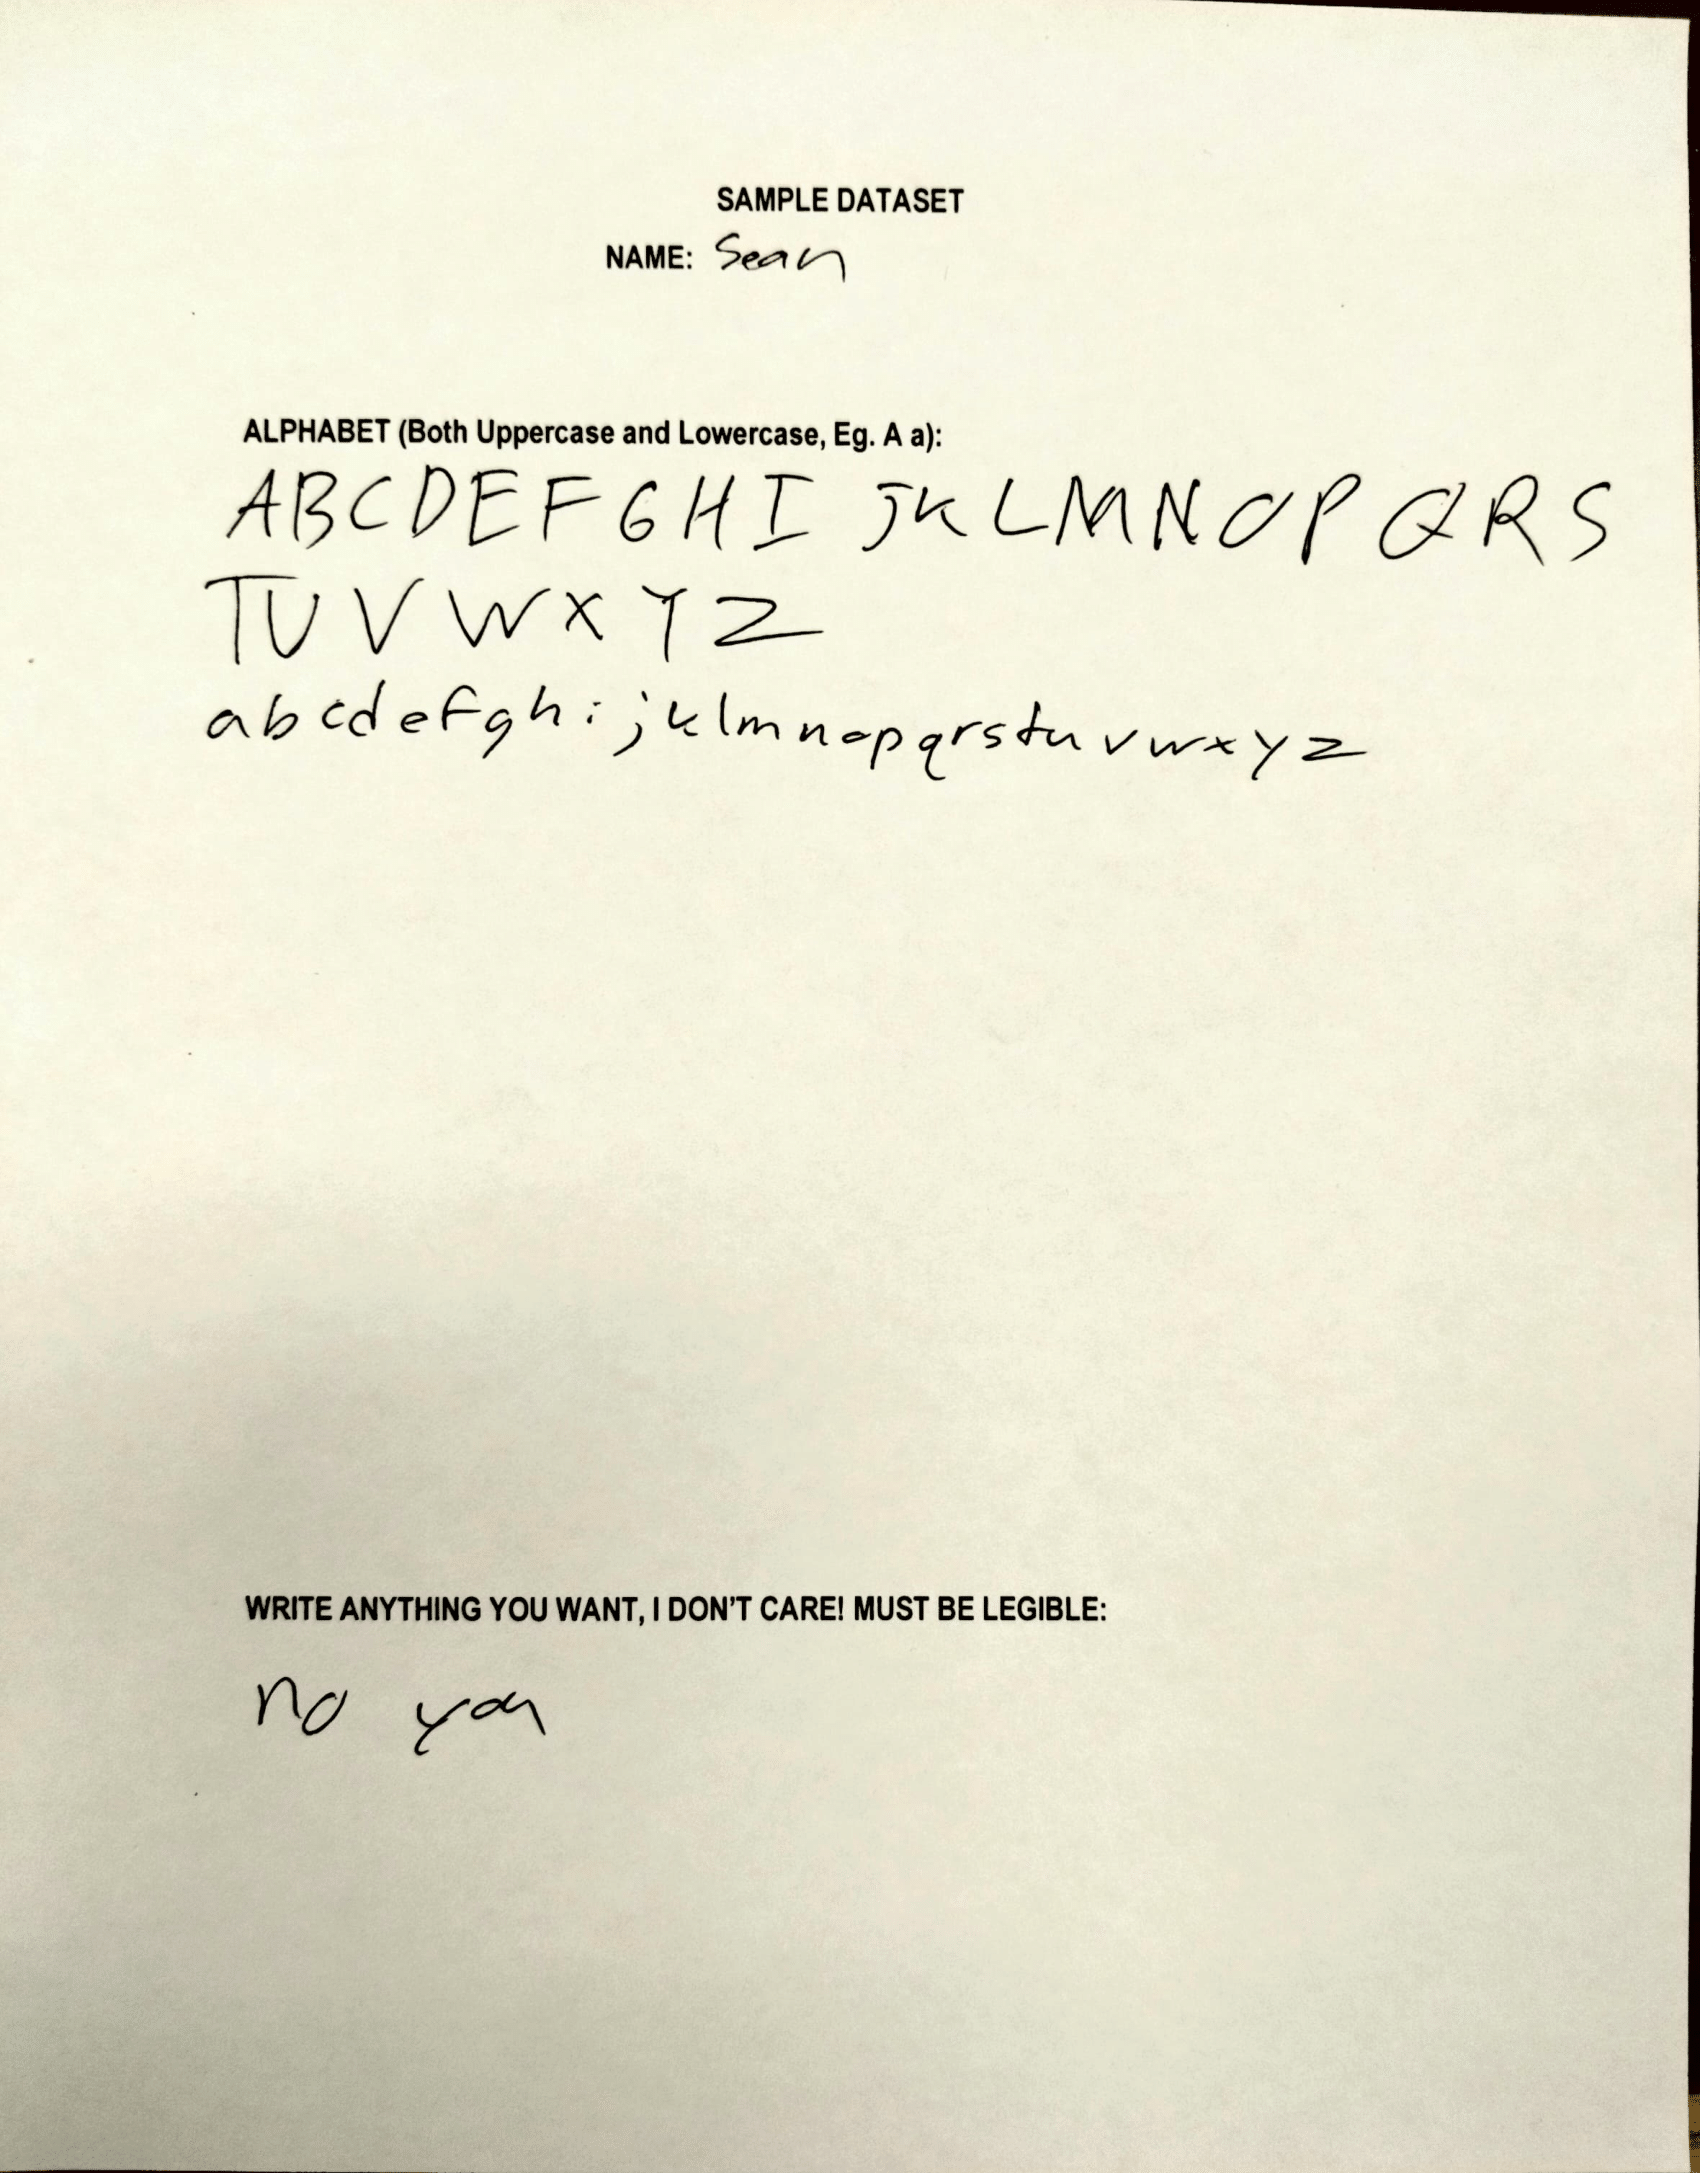 SAMPLE DATASET
NAME: Sean
ALPHABET (Both Uppercase and Lowercase, Eg. A a):
A B C D E F G H I J K L M N O P Q R S
T U V W X Y Z
a b c d e f g h i j k l m n o p q r s t u v w x y z
WRITE ANYTHING YOU WANT, I DON'T CARE! MUST BE LEGIBLE:
no you